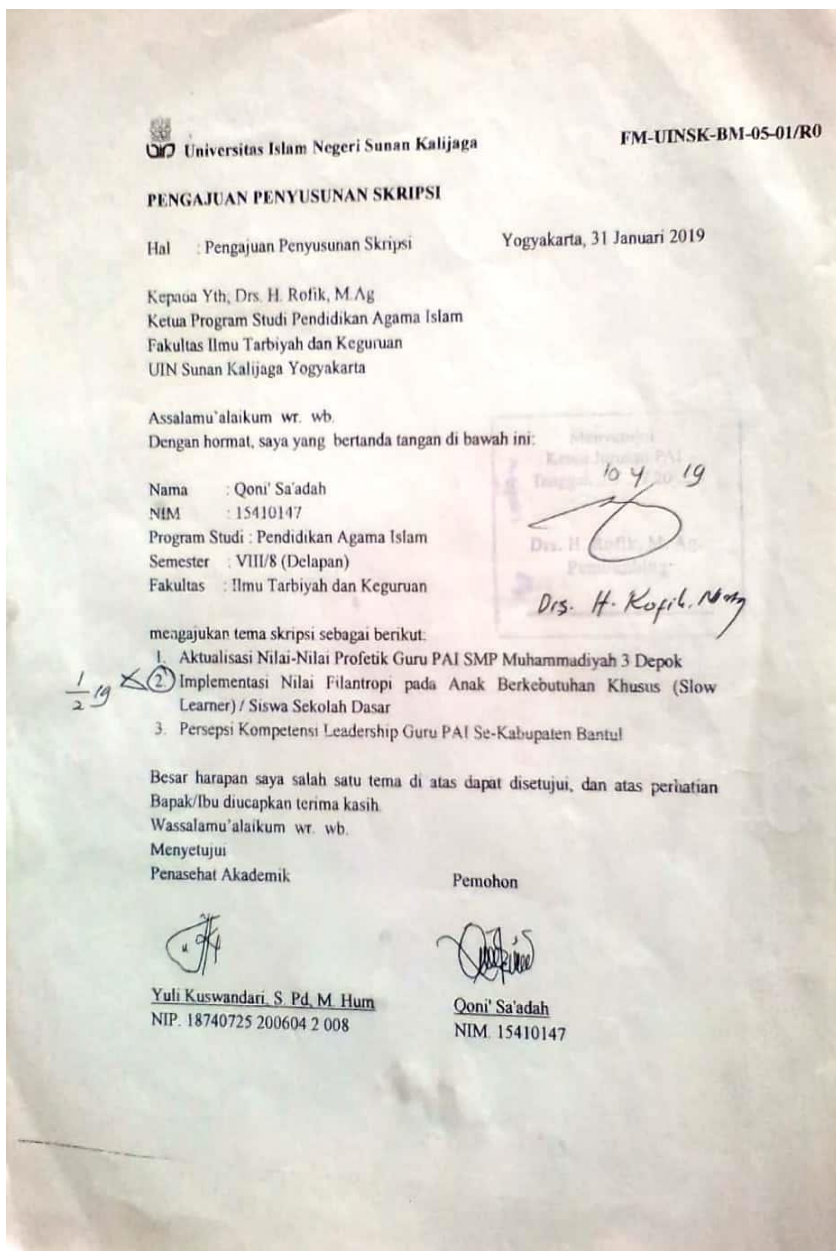 Universitas Islam Negeri Sunan Kalijaga
FM-UINSK-BM-05-01/R0
PENGAJUAN PENYUSUNAN SKRIPSI
Hal : Pengajuan Penyusunan Skripsi
Yogyakarta, 31 Januari 2019
Kepada Yth; Drs. H. Rofik, M.Ag
Ketua Program Studi Pendidikan Agama Islam
Fakultas Ilmu Tarbiyah dan Keguruan
UIN Sunan Kalijaga Yogyakarta
Assalamu'alaikum wr. wb.
Dengan hormat, saya yang bertanda tangan di bawah ini:
Menyetujui
Ketua Jurusan PAI
Tanggal
10 4 19
Nama : Qoni' Sa'adah
NIM : 15410147
Program Studi : Pendidikan Agama Islam
Semester : VIII/8 (Delapan)
Fakultas : Ilmu Tarbiyah dan Keguruan
Drs. H. Rofik, M. Ag.
Drs. H. Rofik, M.Ag
mengajukan tema skripsi sebagai berikut:
1. Aktualisasi Nilai-Nilai Profetik Guru PAI SMP Muhammadiyah 3 Depok
1/2 19
2. Implementasi Nilai Filantropi pada Anak Berkebutuhan Khusus (Slow
Learner) / Siswa Sekolah Dasar
3. Persepsi Kompetensi Leadership Guru PAI Se-Kabupaten Bantul
Besar harapan saya salah satu tema di atas dapat disetujui, dan atas perhatian
Bapak/Ibu diucapkan terima kasih
Wassalamu'alaikum wr. wb.
Menyetujui
Penasehat Akademik
Pemohon
Yuli Kuswandari, S. Pd, M. Hum
NIP. 18740725 200604 2 008
Qoni' Sa'adah
NIM. 15410147